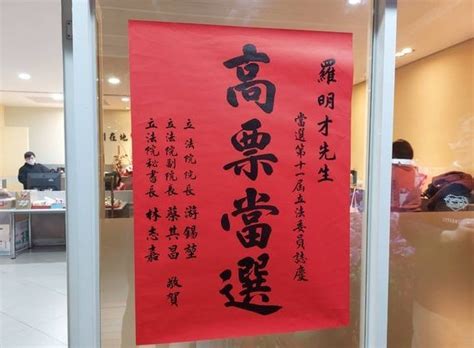 羅明才先生
當選第十一屆立法委員誌慶
高票當選
立法院院長 游錫堃
立法院副院長 蔡其昌
立法院秘書長 林志嘉
敬賀
在地